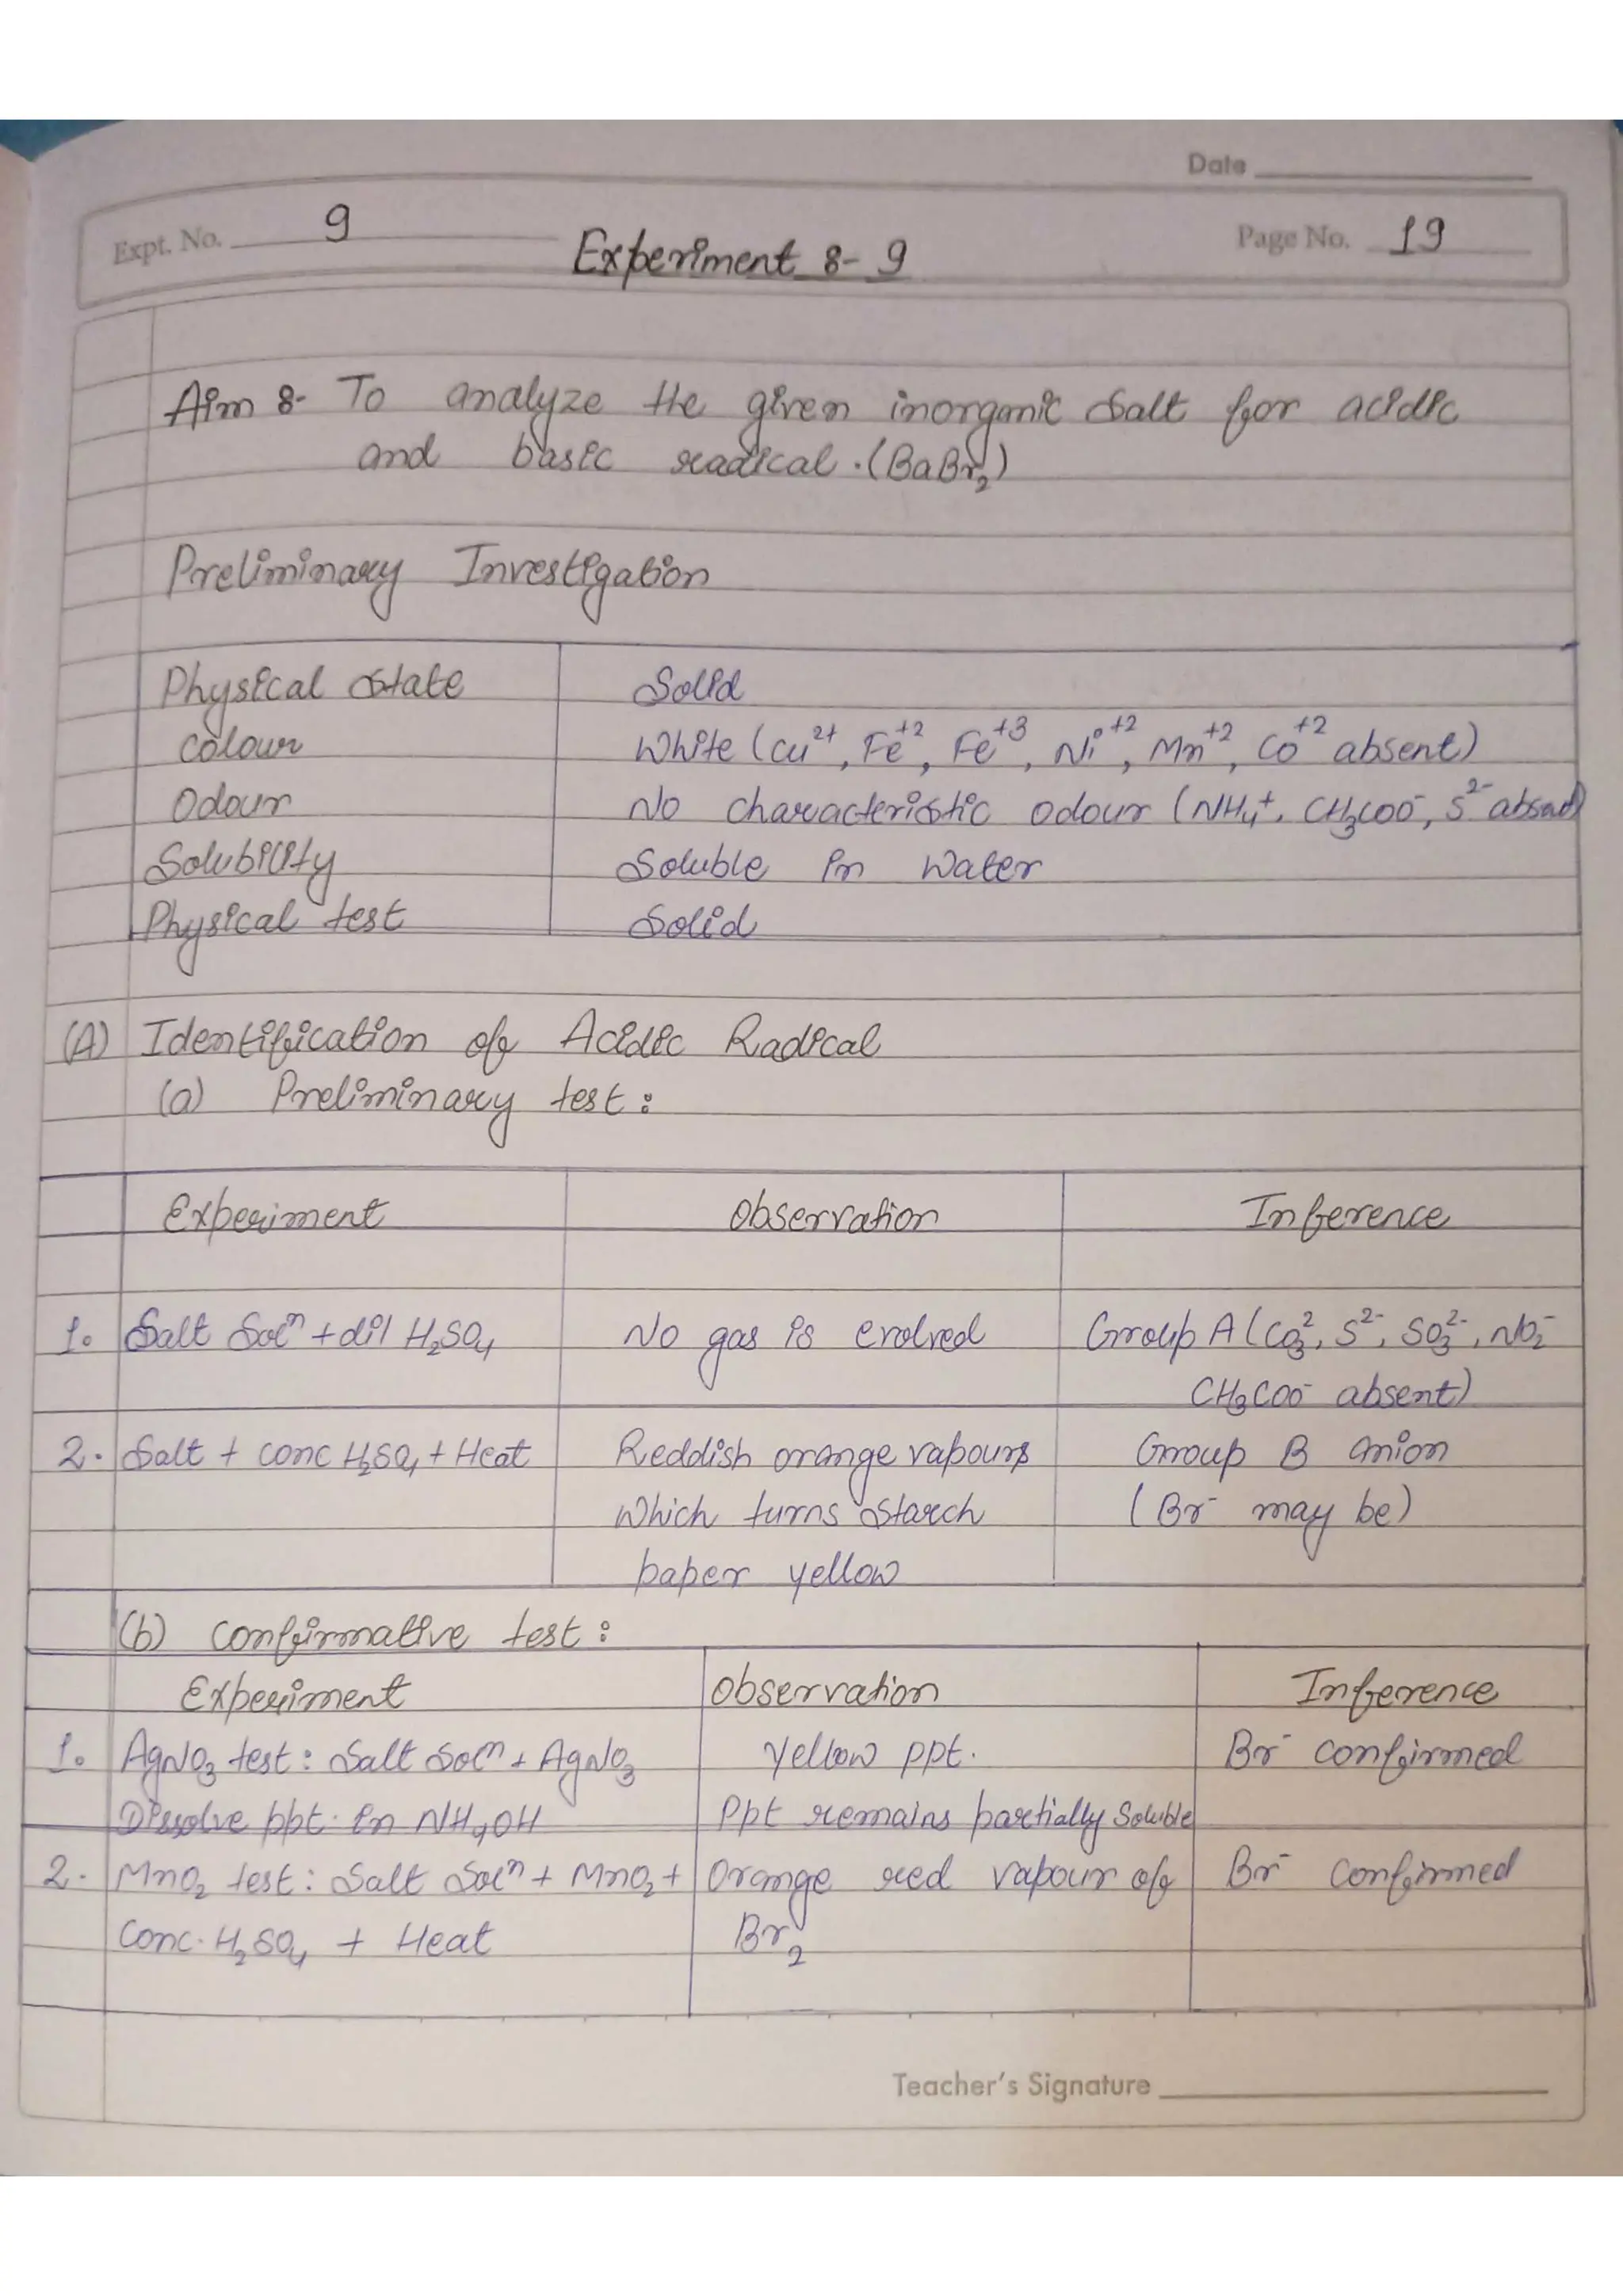 Date
Expt. No. 9
Experiment 8- 9
Page No. 19
Aim 8- To analyze the given inorganic salt for acidic
and basic radical. (BaBr₂)
Preliminary Investigation
Physical state Solid
Colour White (Cu²⁺, Fe⁺², Fe⁺³, Ni⁺², Mn⁺², Co⁺² absent)
Odour No characteristic odour (NH₄⁺, CH₃COO⁻, S²⁻ absent)
Solubility Soluble in water
Physical test Solid
(A) Identification of Acidic Radical
(a) Preliminary test :
Experiment Observation Inference
1. Salt Solⁿ + dil H₂SO₄ No gas is evolved Group A (CO₃²⁻, S²⁻, SO₃²⁻, NO₂⁻
CH₃COO⁻ absent)
2. Salt + conc H₂SO₄ + Heat Reddish orange vapours Group B anion
which turns starch (Br⁻ may be)
paper yellow
(b) Confirmative test :
Experiment Observation Inference
1. AgNO₃ test : Salt Solⁿ + AgNO₃ Yellow ppt. Br⁻ confirmed
Dissolve ppt. in NH₄OH Ppt remains partially Soluble
2. MnO₂ test : Salt Solⁿ + MnO₂ + Orange red vapour of Br⁻ confirmed
Conc. H₂SO₄ + Heat Br₂
Teacher's Signature